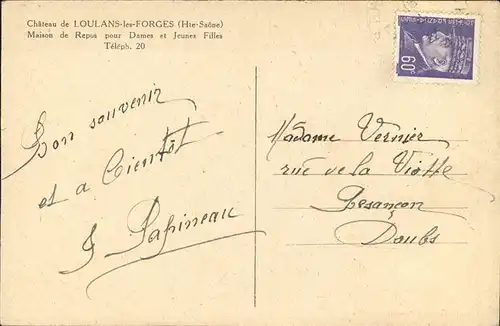 Château de LOULANS-les-FORGES (Hte-Saône)
Maison de Repos pour Dames et Jeunes Filles
Téléph. 20
60
Bon souvenir
et a bientôt
Papineau
Madame Vernier
rue de la Viotte
Besançon
Doubs